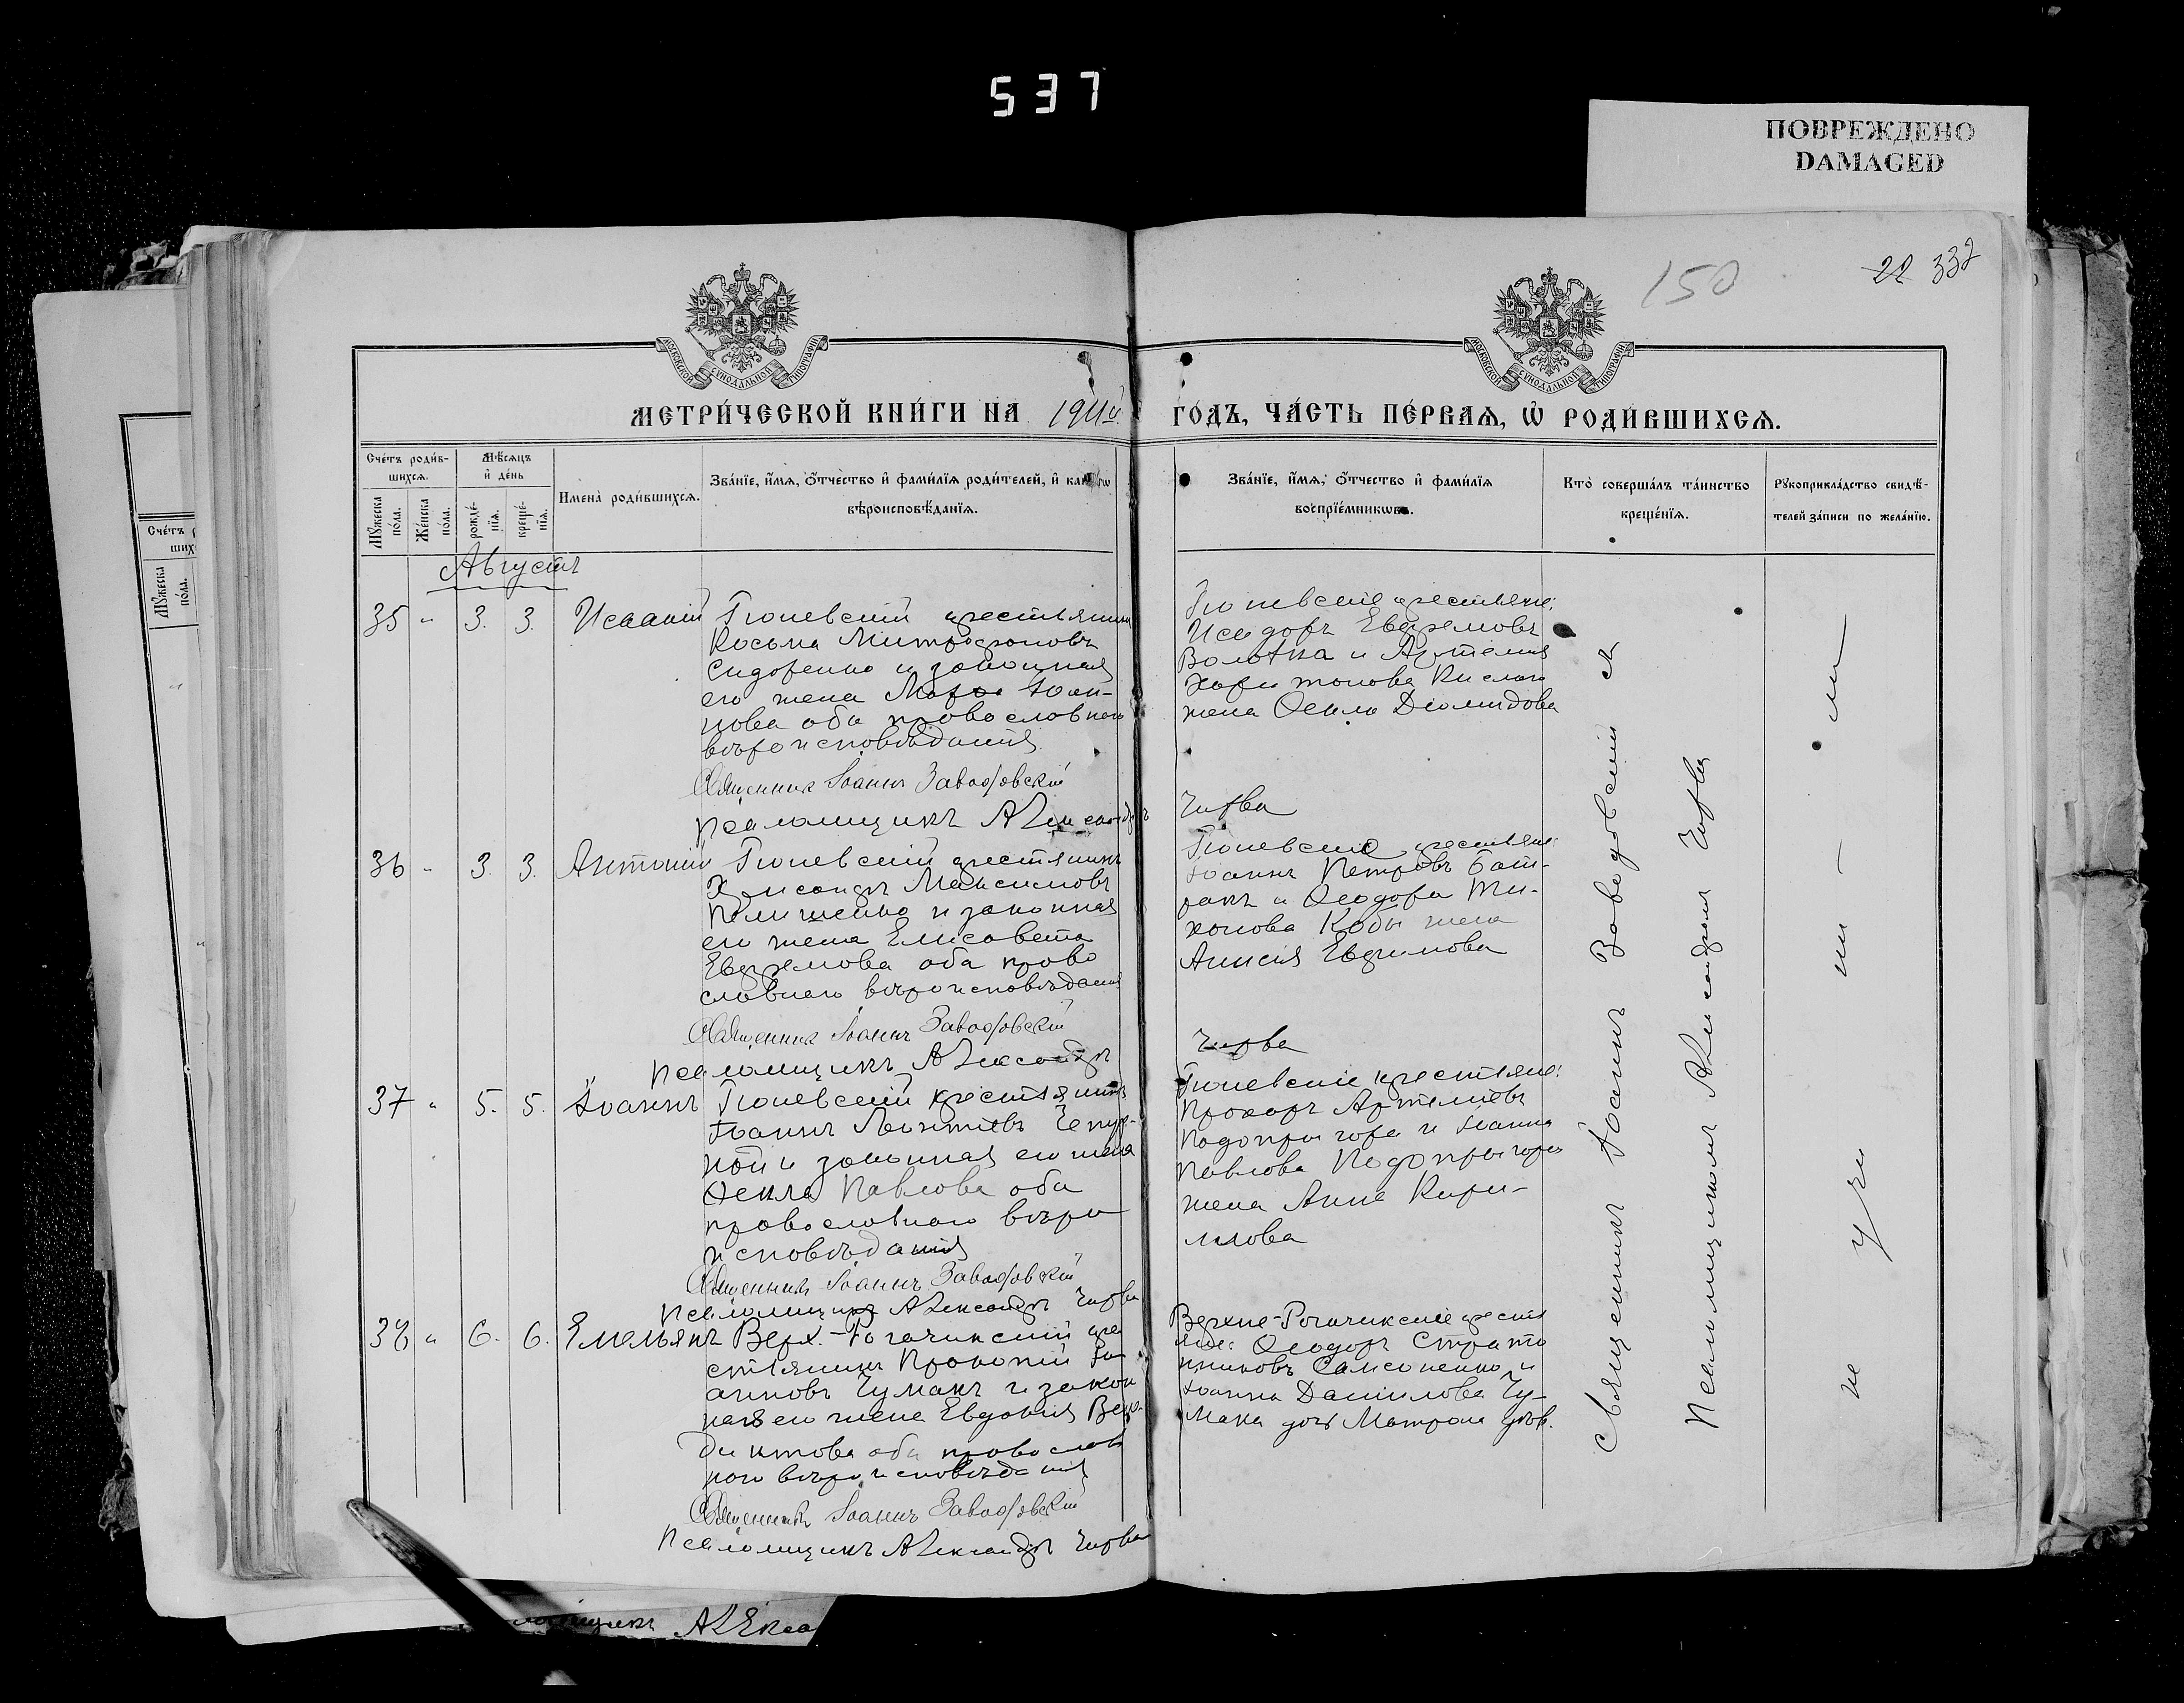 537
ПОВРЕЖДЕНО
DAMAGED
150
22 332
МОСКОВСКОЙ СѴНОДАЛЬНОЙ ТИПОГРАФІИ
МОСКОВСКОЙ СѴНОДАЛЬНОЙ ТИПОГРАФІИ
МЕТРИ́ЧЕСКОЙ КНИ́ГИ НА 1911й ГО́ДЪ, ЧА́СТЬ ПЕ́РВАѦ, Ѡ҆ РОДИ́ВШИХСѦ.
Сче́тъ роди́в-
шихсѧ.
Мꙋ́жеска
по́ла.
Же́нска
по́ла.
Мѣ́сѧцъ
и҆ де́нь
рожде́-
нїѧ.
креще́-
нїѧ.
И҆мена̀ роди́вшихсѧ.
Зва́нїе, и҆́мѧ, ѻ҆́тчество и҆ фами́лїѧ роди́телей, и҆
вѣроисповѣ́данїѧ.
Зва́нїе, и҆́мѧ, ѻ҆́тчество и҆ фами́лїѧ
воспрїе́мникѡвъ.
Кто̀ соверша́лъ та́инство
креще́нїѧ.
Рꙋкоприкла́дство свидѣ́-
телей за́писи по жела́нїю.
Августъ
35 " 3. 3. Исаакій Гюневскій крестьянинъ
Косьма Митрофановъ
Сидоренко и законная
его жена Марѳа Іоан-
нова оба православнаго
вѣроисповѣданія
Священникъ Іоаннъ Заводовскій
Псаломщикъ Александръ Чирва
Гюневскіе крестьяне:
Исидоръ Евфремовъ
Волотка и Артемія
Харитонова Кислаго
жена Ѳекла Діомидова
36 " 3. 3. Антоній Гюневскій крестьянинъ
Александръ Максимовъ
и законная
его жена Елисавета
Евфремова оба право
славнаго вѣроисповѣданія
Священникъ Іоаннъ Заводовскій
Псаломщикъ Александръ Чирва
Гюневскіе крестьяне:
Іоаннъ Петровъ Бат-
ракъ и Ѳеодора Ти-
хонова Кобы жена
Анисія Евфимова
37 " 5. 5. Іоаннъ Гюневскій крестьянинъ
Іоаннъ Леонтіевъ Чепур-
ной и законная его жена
Ѳекла Павлова оба
православнаго вѣро
исповѣданія
Священникъ Іоаннъ Заводовскій
Псаломщикъ Александръ Чирва
Гюневскіе крестьяне:
Прохоръ Артеміевъ
Подопригора и Іоанна
Павлова Подопригоры
жена Анна Кири-
ллова
38 " 6. 6. Емельянъ Верх.-Рогачикскій кре
стьянинъ Прокопій Іо-
анновъ Чумакъ и закон
ная его жена Евдокія
православ
наго вѣроисповѣданія
Священникъ Іоаннъ Заводовскій
Псаломщикъ Александръ Чирва
Верхне-Рогачикскіе кресть
яне: Ѳеодоръ Страто
никовъ Самсоненко и
Іоанна Даніилова Чу-
мака дочь Матрона дѣв.
Священникъ Іоаннъ Заводовскій съ
Псаломщикомъ Александромъ Чирва